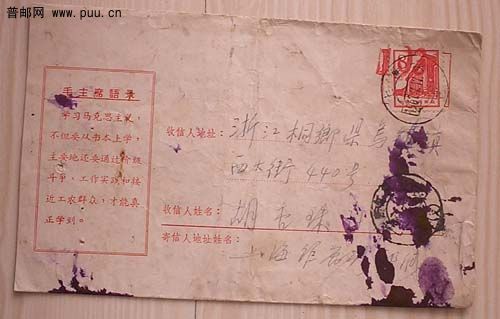 普邮网 www.puu.cn
毛主席語录
学习马克思主义,
不但要从书本上学,
主要地还要通过阶级
斗争、工作实践和接
近工农群众,才能真
正学到。
收信人地址:
浙江桐鄉県乌镇
西大街440号
收信人姓名:
胡
寄信人地址姓名:
上海